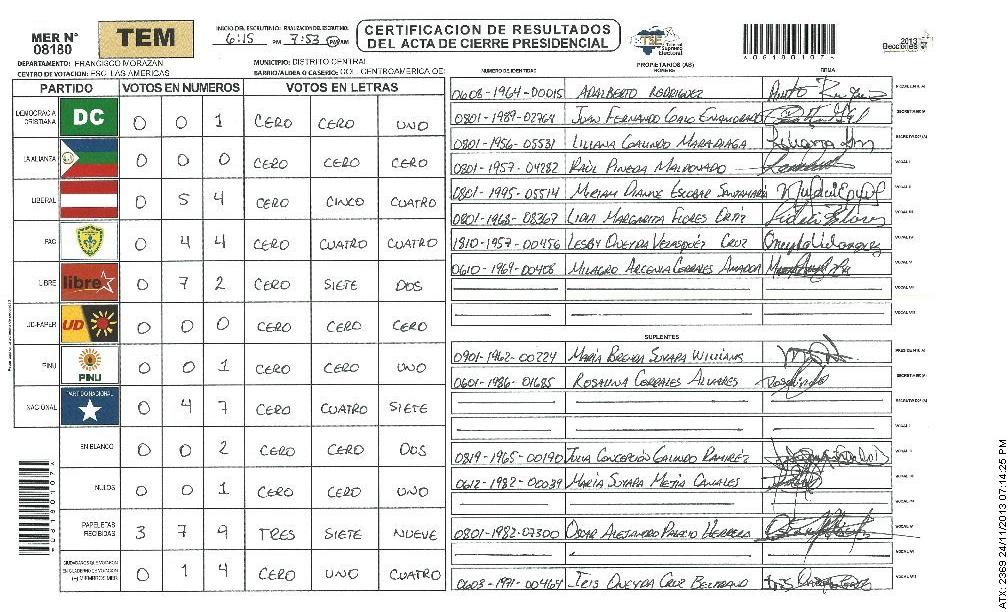 MER N° 08180
TEM
INICIO DEL ESCRUTINIO: 6:15 PM
FINALIZACION DEL ESCRUTINIO: 7:53 PM AM
CERTIFICACION DE RESULTADOS
DEL ACTA DE CIERRE PRESIDENCIAL
TSE Tribunal Supremo Electoral
* 0 8 1 8 0 1 0 7 *
2013
Elecciones
DEPARTAMENTO: FRANCISCO MORAZAN
MUNICIPIO: DISTRITO CENTRAL
CENTRO DE VOTACION: ESC. LAS AMERICAS
BARRIO/ALDEA O CASERIO: COL. CENTROAMERICA OE
PARTIDO VOTOS EN NUMEROS VOTOS EN LETRAS
DEMOCRACIA CRISTIANA DC 0 0 1 CERO CERO UNO
LA ALIANZA 0 0 0 CERO CERO CERO
LIBERAL 0 5 4 CERO CINCO CUATRO
PAC 0 4 4 CERO CUATRO CUATRO
LIBRE libre 0 7 2 CERO SIETE DOS
UD-FAPER UD 0 0 0 CERO CERO CERO
PINU PINU 0 0 1 CERO CERO UNO
NACIONAL PARTIDO NACIONAL 0 4 7 CERO CUATRO SIETE
EN BLANCO 0 0 2 CERO CERO DOS
NULOS 0 0 1 CERO CERO UNO
PAPELETAS RECIBIDAS 3 7 9 TRES SIETE NUEVE
CIUDADANOS QUE VOTARON EN CUADERNO DE VOTACION (+) MIEMBROS MER 0 1 4 CERO UNO CUATRO
NUMERO DE IDENTIDAD
PROPIETARIOS (AS)
NOMBRE
FIRMA
0608-1964-00015 ADALBERTO RODRIGUEZ PRESIDENTE(A)
0801-1989-02764 JUAN FERNANDO ENAMORADO SECRETARIO(A)
0801-1956-05531 LILIANA GALINDO MARADIAGA ESCRUTADOR(A)
0801-1957-04282 RAÚL PINEDA MALDONADO VOCAL I
0801-1995-05514 MIRIAM DIANNE ESCOBAR SANTAMARÍA VOCAL II
0801-1968-08367 LIDIA MARGARITA FLORES ORTIZ VOCAL III
1810-1957-00456 LESBY ONEYDA VELASQUEZ CRUZ VOCAL IV
0610-1969-00408 MILAGRO ARGENIA CORRALES AMADOR VOCAL V
VOCAL VI
VOCAL VII
SUPLENTES
0901-1962-00224 MARÍA SUYAPA WILLIAMS PRESIDENTE(A)
0601-1986-01685 ROSALINA CORRALES ALVARES SECRETARIO(A)
ESCRUTADOR(A)
VOCAL I
0819-1965-00190 JULIA CONCEPCIÓN GALINDO RAMIREZ VOCAL II
0612-1982-00039 MARÍA SUYAPA MEJÍA CANALES VOCAL III
VOCAL IV
0801-1982-07300 OSCAR ALEJANDRO PALACIO HERRERA VOCAL V
VOCAL VI
0603-1971-00464 IRIS ONEYDA CRUZ BELTRAND VOCAL VII
* 0 8 1 8 0 1 0 7 *
ATX 2369 24/11/2013 07:14:25 PM